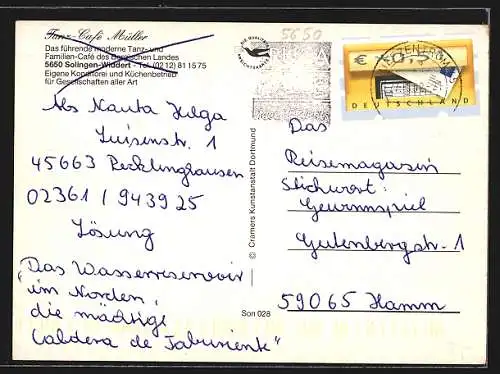 Tanz-Café Müller
Das führende moderne Tanz- und
Familien-Café des Bergischen Landes
5650 Solingen-Widdert - Tel. (0212) 81 15 75
Eigene Konditorei und Küchenbetrieb
für Gesellschaften aller Art
5650
€
BRIEFZENTRUM
DEUTSCHLAND
Abs Nauta Helga
Luisenstr. 1
45663 Recklinghausen
02361 / 943925
Lösung
"Das Wasserreservoir
im Norden,
die mächtige
Caldera de Taburiente"
© Cramers Kunstanstalt Dortmund
Son 028
Das
Reisemagazin
Stichwort:
Gewinnspiel
Gutenbergstr. 1
59065 Hamm